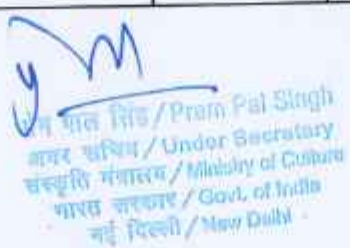 पाल सिंह/Prem Pal Singh
अवर सचिव/Under Secretary
संस्कृति मंत्रालय/Ministry of Culture
भारत सरकार/Govt. of India
नई दिल्ली/New Delhi